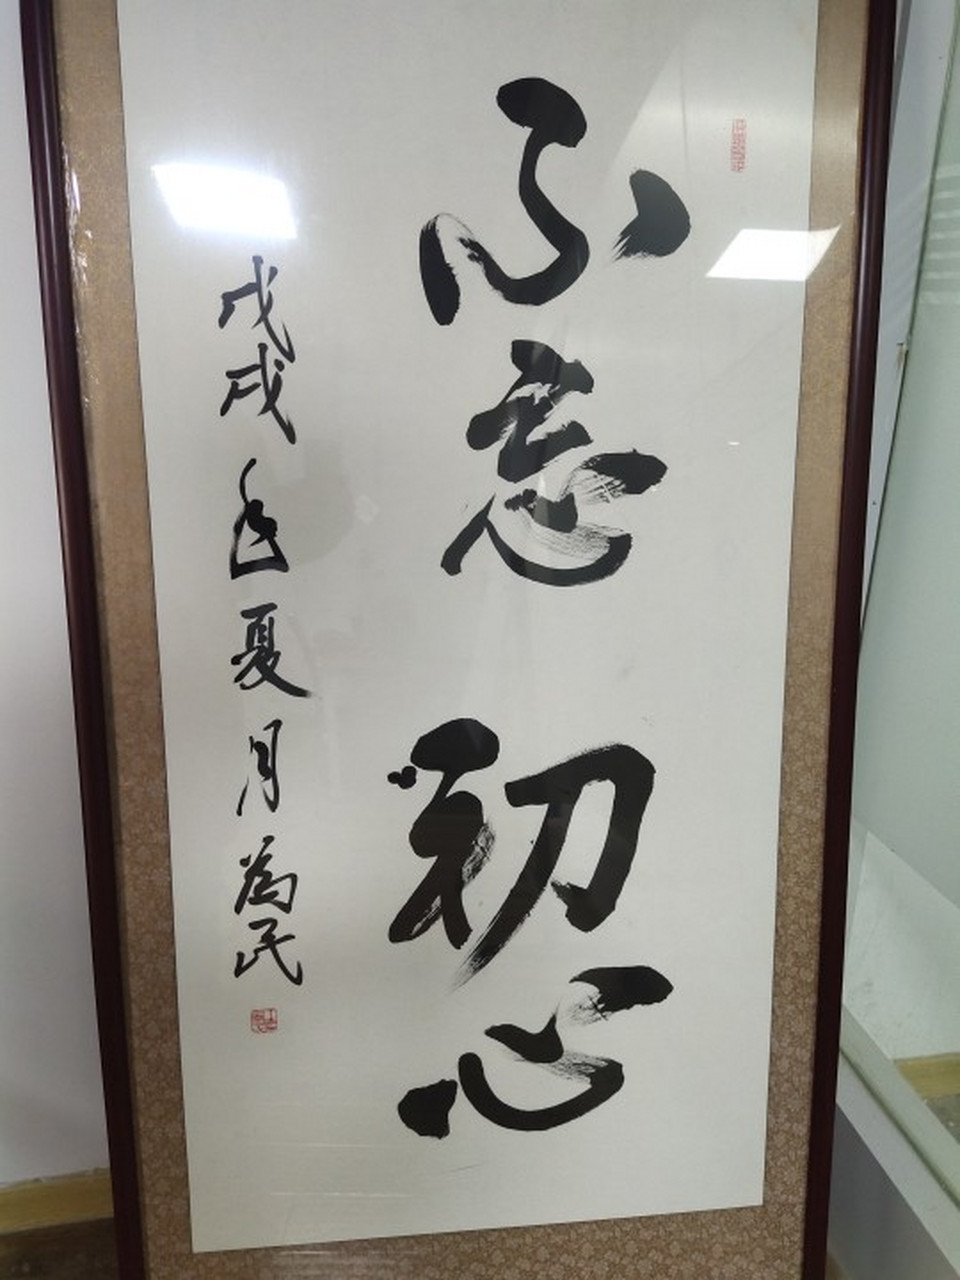 不忘初心
戊戌年夏月为民